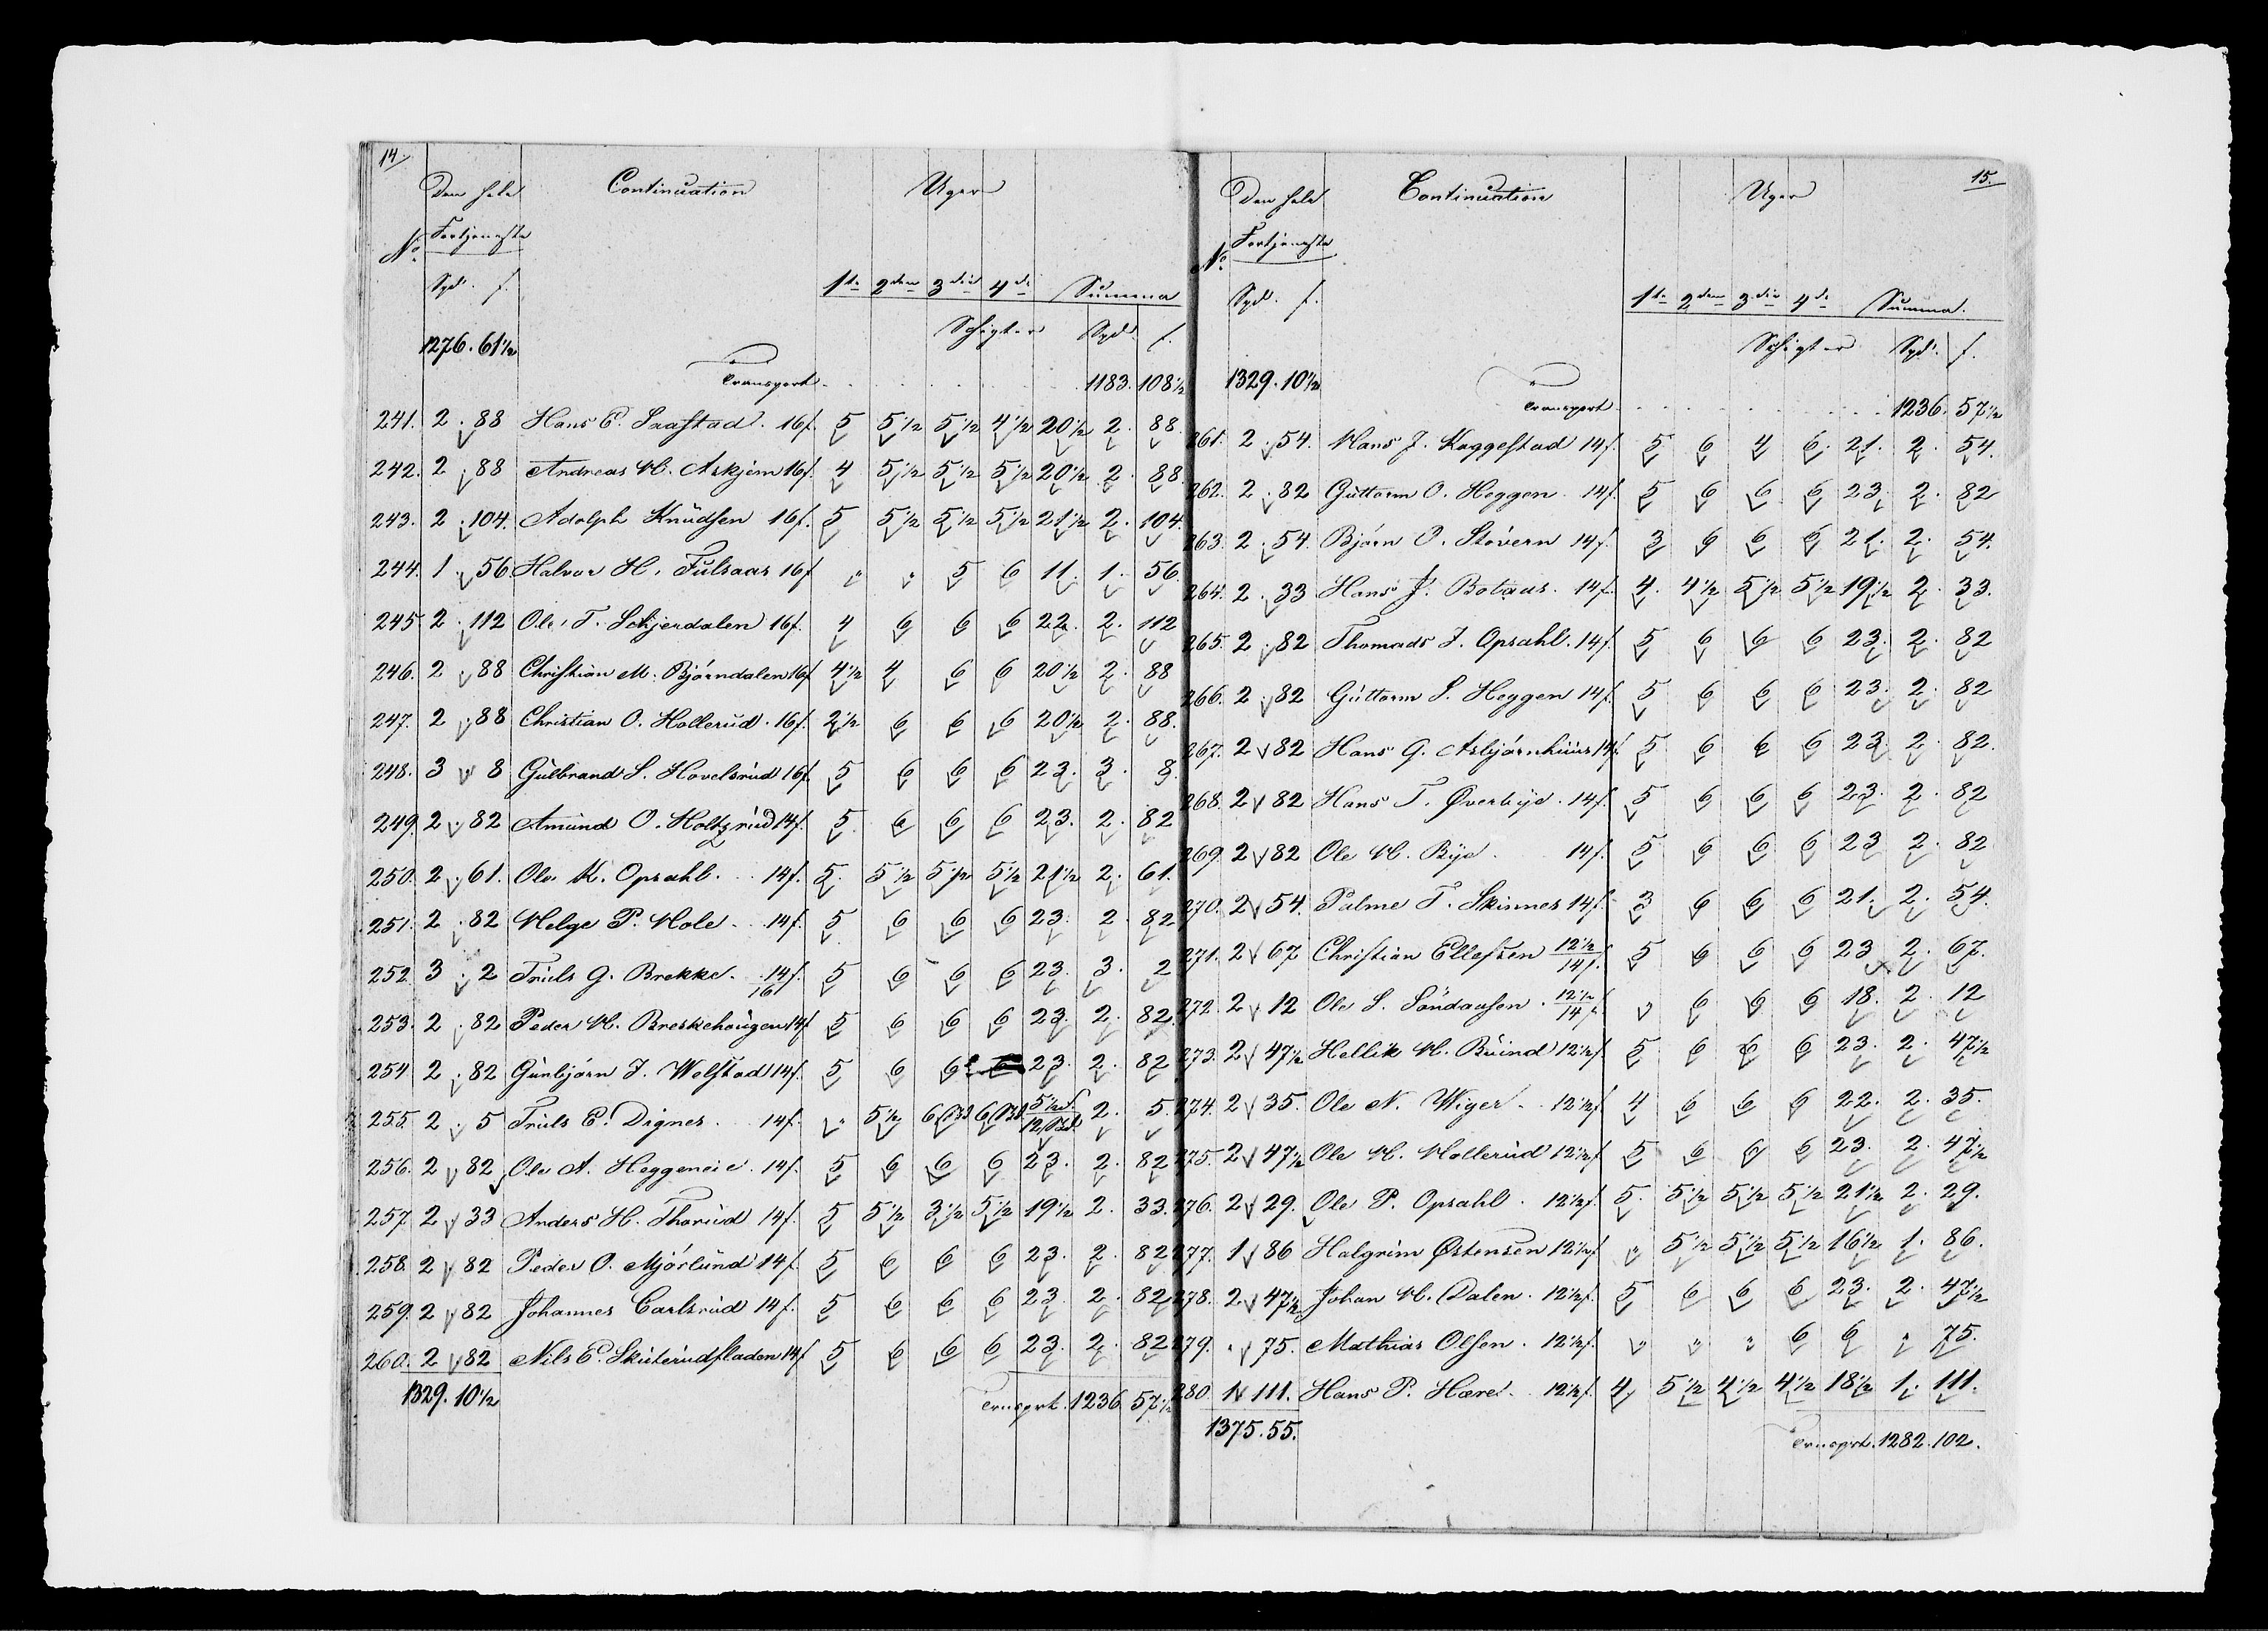 14.
Den hele Continuation Uger
No Fortjeneste
Spd. s. 1te 2den 3die 4de Summa
Schigter Spd. s.
1276. 61½
Transport 1183. 108½
241. 2. 88 Hans E. Saastad. 16s. 5 5½ 5½ 4½ 20½ 2. 88.
242. 2. 88 Andreas H. Askjem 16s. 4 5½ 5½ 5½ 20½ 2. 88
243. 2. 104. Adolph Knudsen 16s. 5 5½ 5½ 5½ 21½ 2. 104.
244. 1. 56 Halvor H. Fulsaas 16s " " 5 6 11. 1. 56.
245. 2. 112 Ole T. Schjerdalen 16s. 4 6 6 6 22. 2. 112
246. 2. 88 Christian M. Bjørndalen 16s 4½ 4 6 6 20½ 2. 88
247. 2. 88 Christian O. Hollerud. 16s. 2½ 6 6 6 20½ 2. 88.
248. 3 8 Gulbrand S. Hovelsrud 16s. 5 6 6 6 23. 3. 8.
249. 2. 82 Amund O. Holtzrud 14s. 5 6 6 6 23. 2. 82
250. 2. 61. Ole K. Opsahl. 14s. 5. 5½ 5½ 5½ 21½ 2. 61.
251. 2. 82 Helge P. Hole. 14s. 5 6 6 6 23. 2. 82
252. 3. 2 Truls G. Brekke. 14/16s. 5 6 6 6 23. 3. 2
253. 2. 82 Peder H. Breskehaugen 14s 5 6 6 6 23. 2. 82.
254. 2. 82 Gunbjørn J. Wolstad 14s. 5 6 6 23. 2. 82
255. 2. 5 Truls E. Dignes. 14s. " 5½ 6 6 5½ 12 2. 5.
256. 2 82 Ole A. Heggeneie. 14s. 5 6 6 6 23. 2. 82
257. 2 33 Anders H. Thorud 14s. 5 5½ 3½ 5½ 19½ 2. 33.
258. 2 82 Peder O. Mjørlund 14s. 5 6 6 6 23. 2. 82
259. 2 82 Johannes Carlsrud 14s. 5 6 6 6 23. 2. 82
260. 2 82 Nils E. Skuterudfladen 14s 5 6 6 6 23. 2. 82
1329. 10½ Trnsprt. 1236 57½
15.
Den hele Continuation Uger
No Fortjeneste
Spd. s. 1te 2den 3die 4de Summa.
Schigter Spd. s.
1329. 10½
Transport 1236. 57½
261. 2. 54. Hans J. Kaggestad 14s. 5 6 4 6. 21. 2. 54.
262. 2. 82 Guttorm O. Heggen. 14s. 5 6 6 6 23. 2. 82
263. 2. 54. Bjørn O. Støvern 14s. 3 6 6 6 21. 2. 54.
264. 2. 33 Hans J. Botaas. 14s. 4. 4½ 5½ 5½ 19½ 2. 33.
265. 2. 82 Thomads J. Opsahl. 14s. 5 6 6 6 23. 2. 82
266. 2. 82 Guttorm S. Heggen 14s. 5 6 6 6 23. 2. 82
267. 2 82 Hans G. Asbjørnhuus 14s. 5 6 6 6 23. 2. 82.
268. 2 82 Hans T. Øverbye. 14s. 5 6 6 6 23. 2. 82
269. 2 82 Ole H. Bye. 14s. 5 6 6 6 23 2. 82
270. 2 54. Palme T. Skinnes 14s. 3 6 6 6 21. 2. 54.
271. 2 67 Christian Ellefsen 12½/14s. 5 6 6 6 23 2. 67.
272. 2 12 Ole S. Søndausen. 12½/14s " 6 6 6 18. 2. 12
273. 2 47½ Hellik H. Buind 12½s. 5 6 6 6 23. 2. 47½
274. 2 35. Ole N. Wiger. 12½s 4 6 6 6 22. 2. 35.
275. 2 47½ Ole H. Hollerud 12½s 5 6 6 6 23. 2. 47½
276. 2 29. Ole P. Opsahl. 12½s. 5. 5½ 5½ 5½ 21½ 2. 29.
277. 1 86 Halgrim Østensen 12½s " 5½ 5½ 5½ 16½ 1. 86.
278. 2 47½ Johan H. Dalen. 12½s. 5 6 6 6 23. 2. 47½
279. " 75. Mathias Olsen. 12½s. " " " 6 6 " 75.
280. 1 111. Hans P. Hære. 12½s. 4 5½ 4½ 4½ 18½ 1. 111.
1375. 55. Trnsprt. 1282. 102.